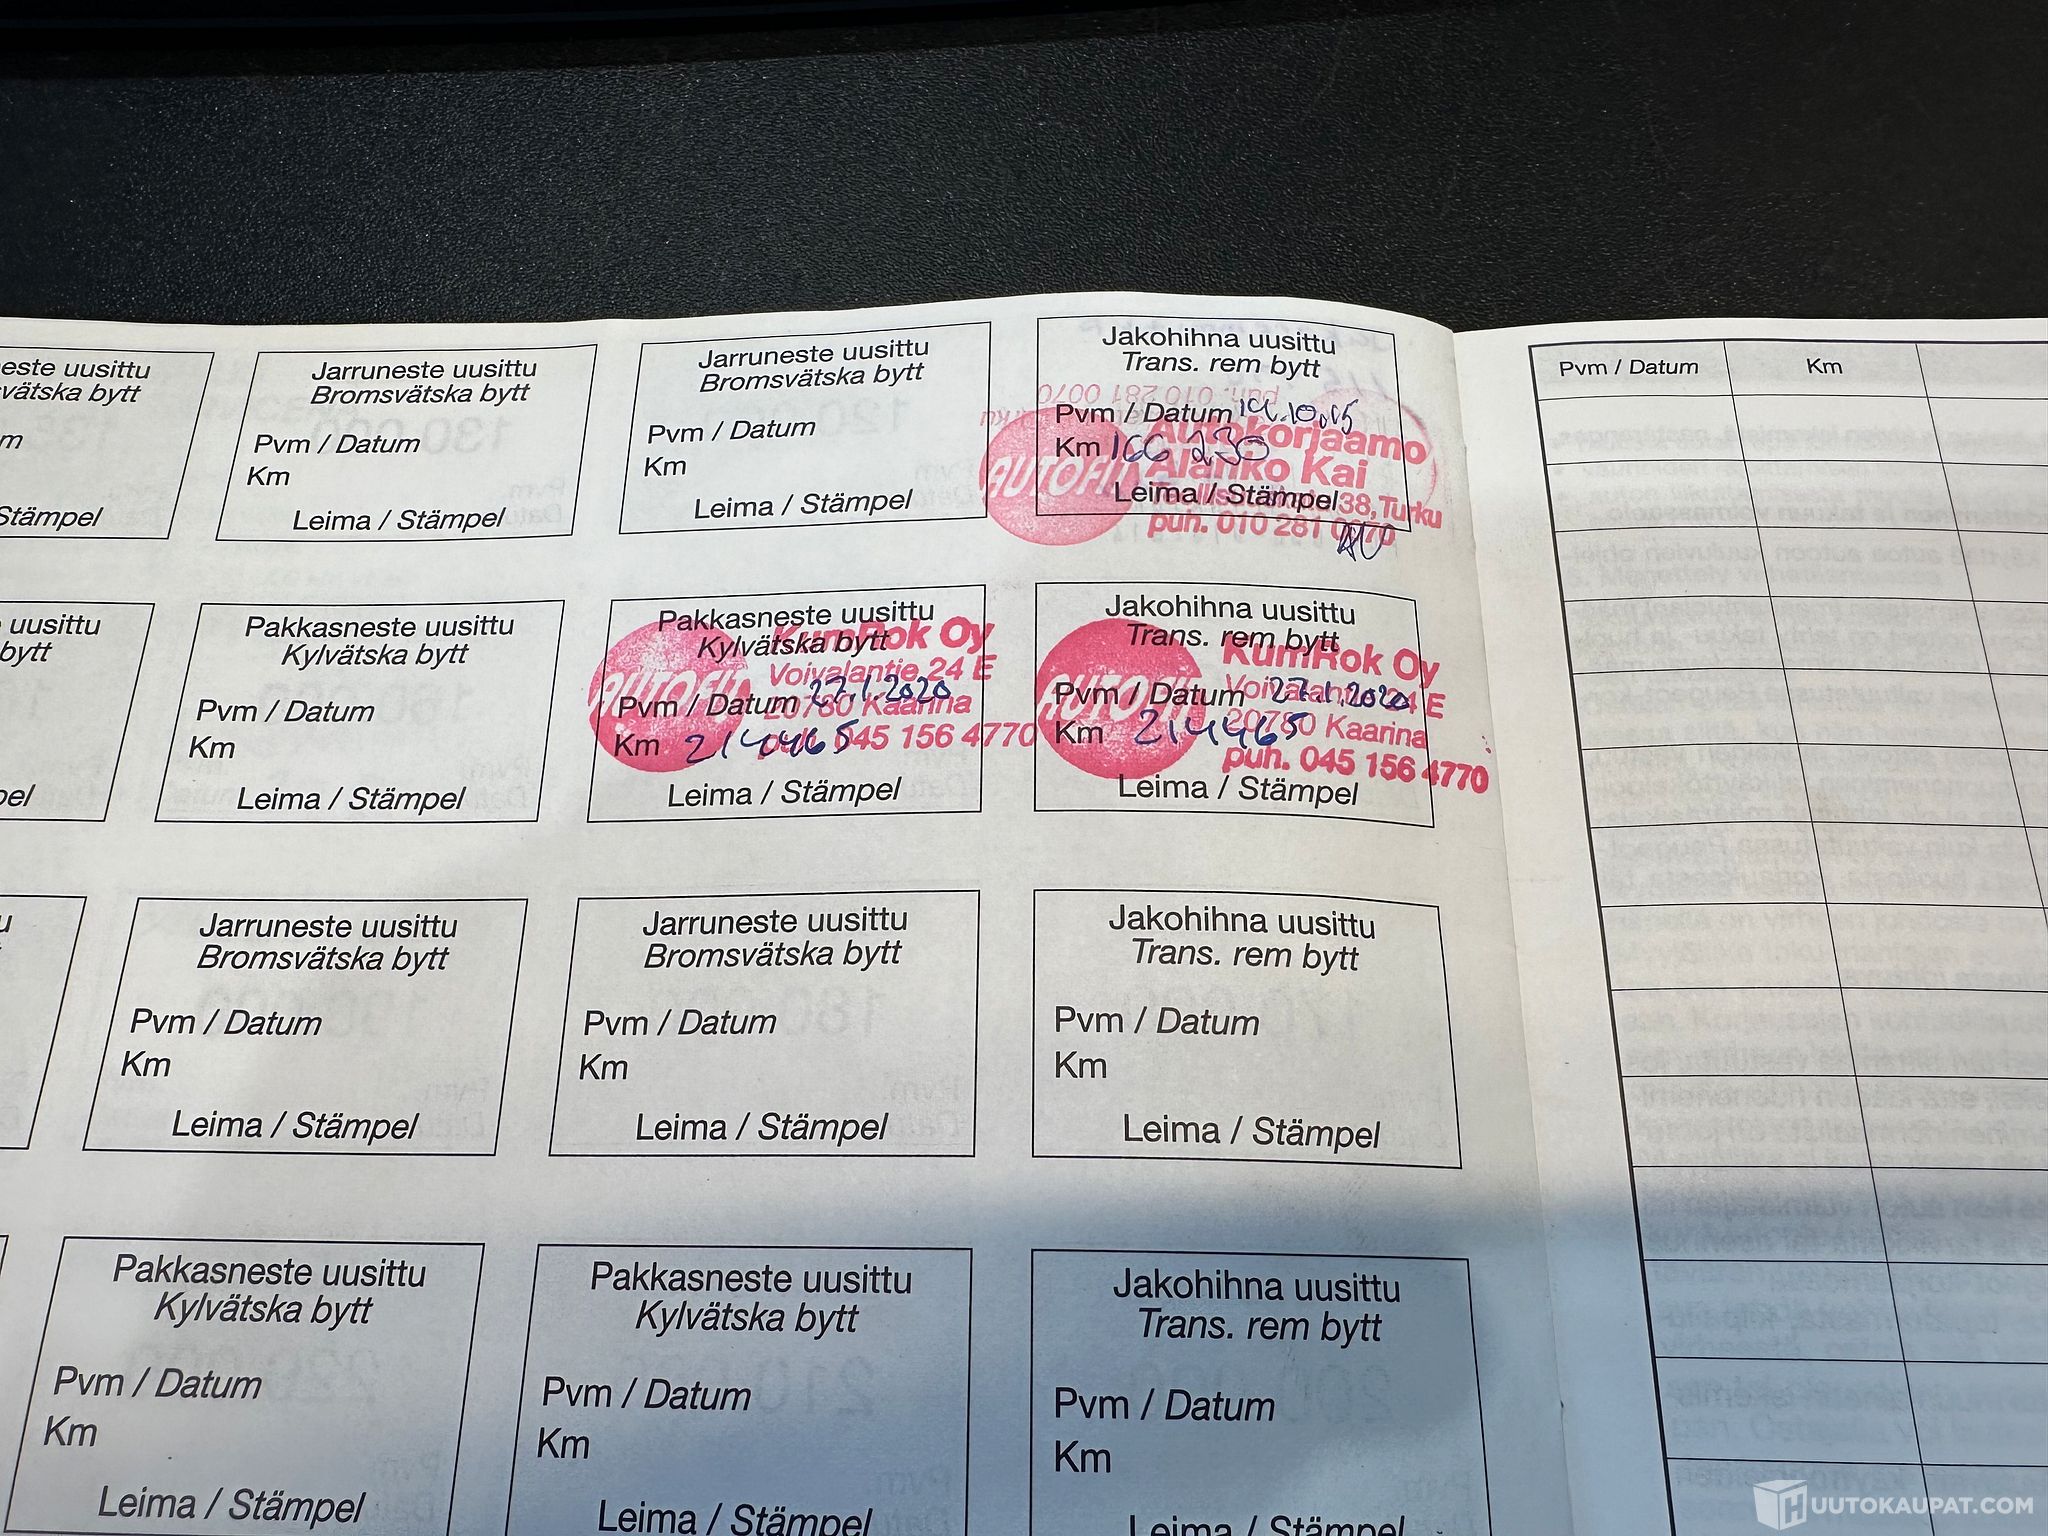 este uusittu
vätska bytt
m
Stämpel
Jarruneste uusittu
Bromsvätska bytt
Pvm / Datum
Km
Leima / Stämpel
Jarruneste uusittu
Bromsvätska bytt
Pvm / Datum
Km
Leima / Stämpel
Jakohihna uusittu
Trans. rem bytt
Pvm / Datum
Km 166 230
Leima / Stämpel
AUTOFIT
Autokorjaamo
Alanko Kai
38, Turku
puh. 010 281 0070
puh. 010 281 0070
Pvm / Datum
Km
uusittu
bytt
pel
Pakkasneste uusittu
Kylvätska bytt
Pvm / Datum
Km
Leima / Stämpel
Pakkasneste uusittu
Kylvätska bytt
Pvm / Datum 27.1.2020
Km 214465
Leima / Stämpel
AUTOFIT
KumRok Oy
Voivalantie 24 E
20780 Kaarina
puh. 045 156 4770
Jakohihna uusittu
Trans. rem bytt
Pvm / Datum 27.1.2020
Km 214465
Leima / Stämpel
AUTOFIT
KumRok Oy
Voivalantie 24 E
20780 Kaarina
puh. 045 156 4770
u
Jarruneste uusittu
Bromsvätska bytt
Pvm / Datum
Km
Leima / Stämpel
Jarruneste uusittu
Bromsvätska bytt
Pvm / Datum
Km
Leima / Stämpel
Jakohihna uusittu
Trans. rem bytt
Pvm / Datum
Km
Leima / Stämpel
Pakkasneste uusittu
Kylvätska bytt
Pvm / Datum
Km
Leima / Stämpel
Pakkasneste uusittu
Kylvätska bytt
Pvm / Datum
Km
Leima / Stämpel
Jakohihna uusittu
Trans. rem bytt
Pvm / Datum
Km
Leima / Stämpel
HUUTOKAUPAT.COM